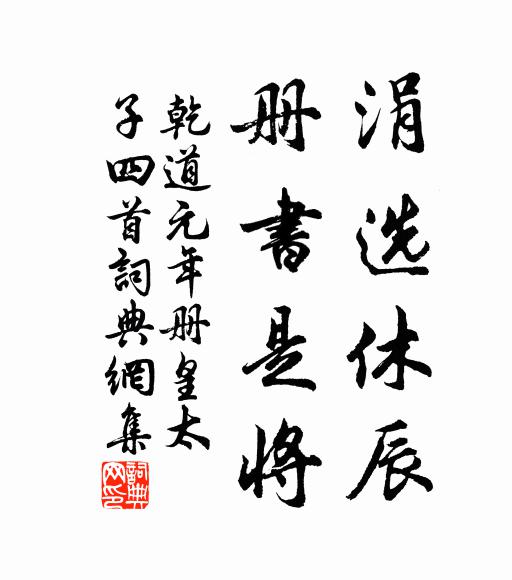 涓选休辰
册書是将
乾道元年册皇太
子四首詞典網集
詞典网印